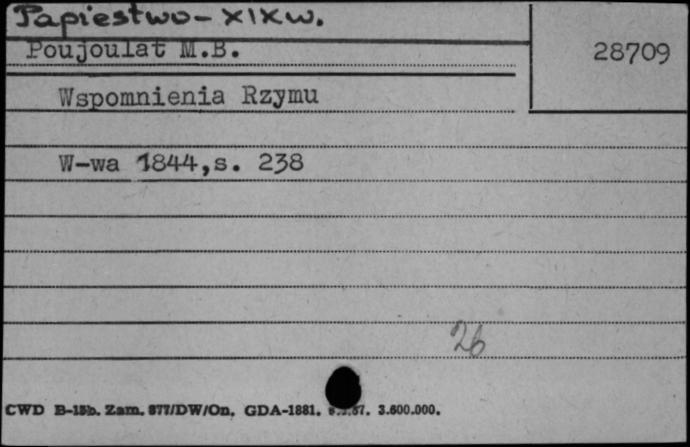 Papiestwo - XIX w.
Poujoulat M.B.
28709
Wspomnienia Rzymu
W-wa 1844, s. 238
26
CWD B-15b. Zam. 877/DW/On. GDA-1881. 3.600.000.